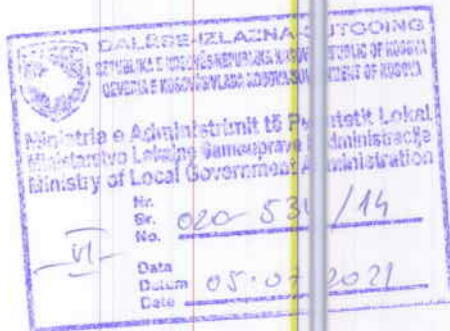 DALËSE-IZLAZNA-OUTGOING
REPUBLIKA E KOSOVËS-REPUBLIKA KOSOVO-REPUBLIC OF KOSOVA
QEVERIA E KOSOVËS/VLADA KOSOVA/GOVERNMENT OF KOSOVA
Ministria e Administrimit të Pushtetit Lokal
Ministarstvo Lokalne Samouprave Administracije
Ministry of Local Government Administration
Nr.
Br.
No. 020- /14
VI
Data
Datum
Date 05.07 2021